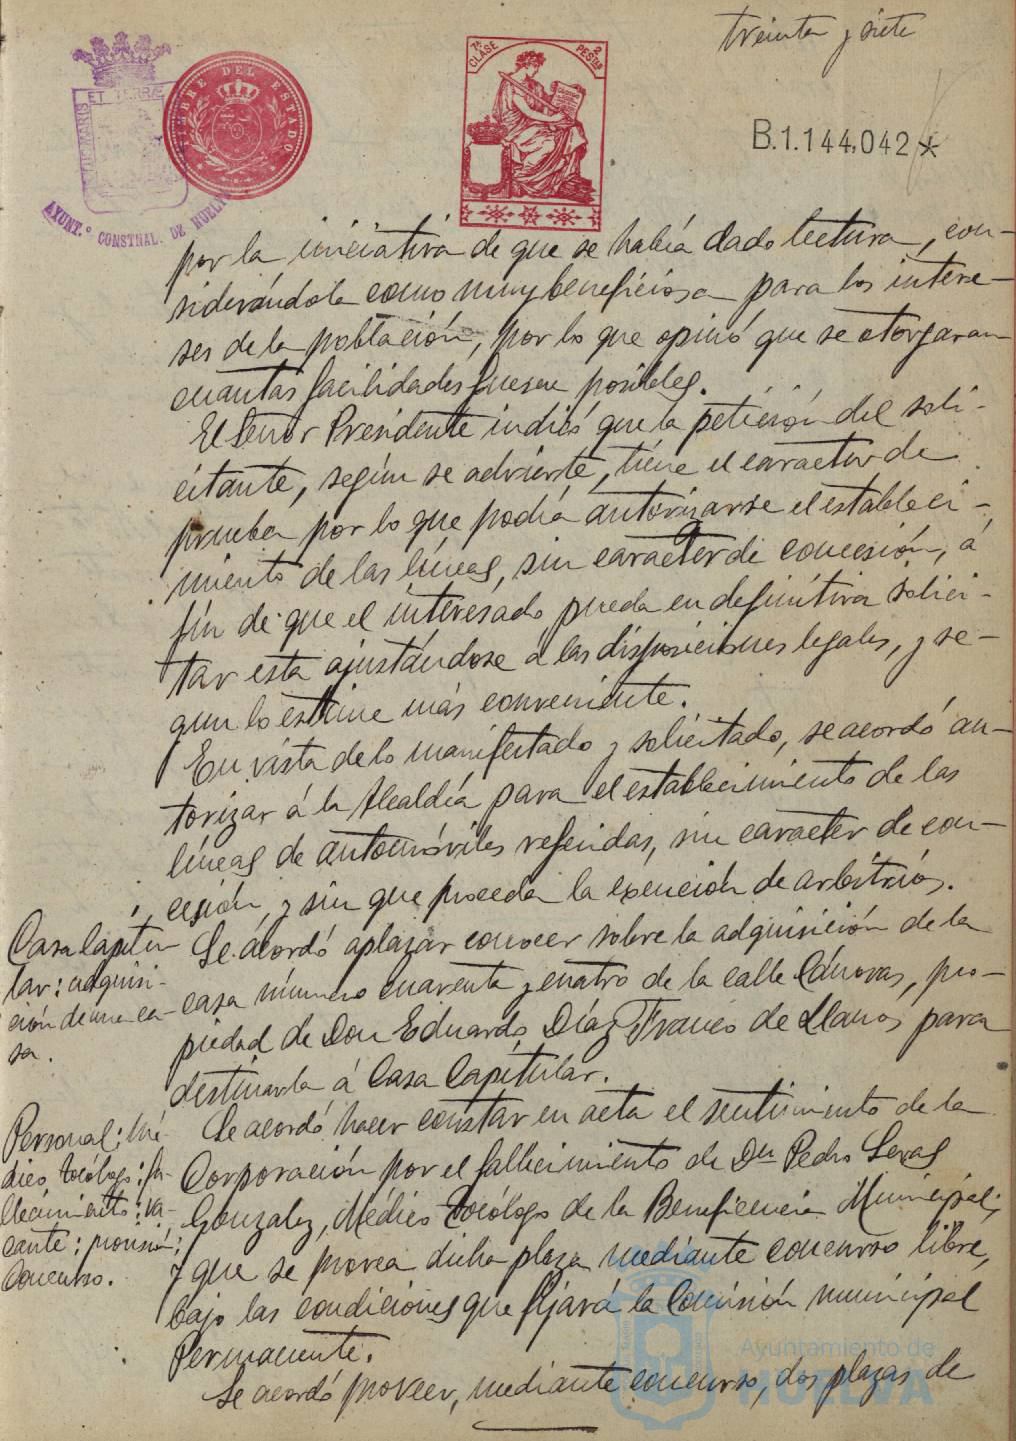 treinta y siete
ET TERRÆ
MARIS
AYUNT.º CONSTNAL. DE HUELVA
TIMBRE DEL ESTADO
7ª CLASE
2 PESTAS
B.1.144,042*
por la iniciativa de que se había dado lectura, con-
siderándola como muy beneficiosa para los intere-
ses de la población, por lo que opinó que se otorgaran
cuantas facilidades fuesen posibles.
El Señor Presidente indicó que la petición del soli-
citante, según se advierte, tiene el caracter de
prueba por lo que podría autorizarse el estableci-
miento de las líneas, sin caracter de concesión, á
fín de que el interesado pueda en definitiva solici-
tar esta ajustándose á las disposiciones legales, y se-
gun lo estime más conveniente.
En vista de lo manifestado y solicitado, se acordó au-
torizar á la Alcaldía para el establecimiento de las
líneas de automóviles referidas, sin caracter de con-
cesión, y sin que proceda la exención de arbitrios.
Casa Capitu-
lar: adquisi-
ción de una ca-
sa.
Se acordó aplazar conocer sobre la adquisición de la
casa número cuarenta y cuatro de la calle Cánovas, pro-
piedad de Don Eduardo Díaz Franco de Llanos para
destinarla á Casa Capitular.
Personal: Mé-
dico tocólogo: fa-
llecimiento: va-
cante: provisión:
Concurso.
Se acordó hacer constar en acta el sentimiento de la
Corporación por el fallecimiento de Dn Pedro Seras
Gonzalez, Médico Tocólogo de la Beneficencia Municipal;
y que se provea dicha plaza mediante concurso libre,
bajo las condiciones que fijará la Comisión municipal
Permanente.
Se acordó proveer, mediante concurso, dos plazas de
Ayuntamiento de
HUELVA